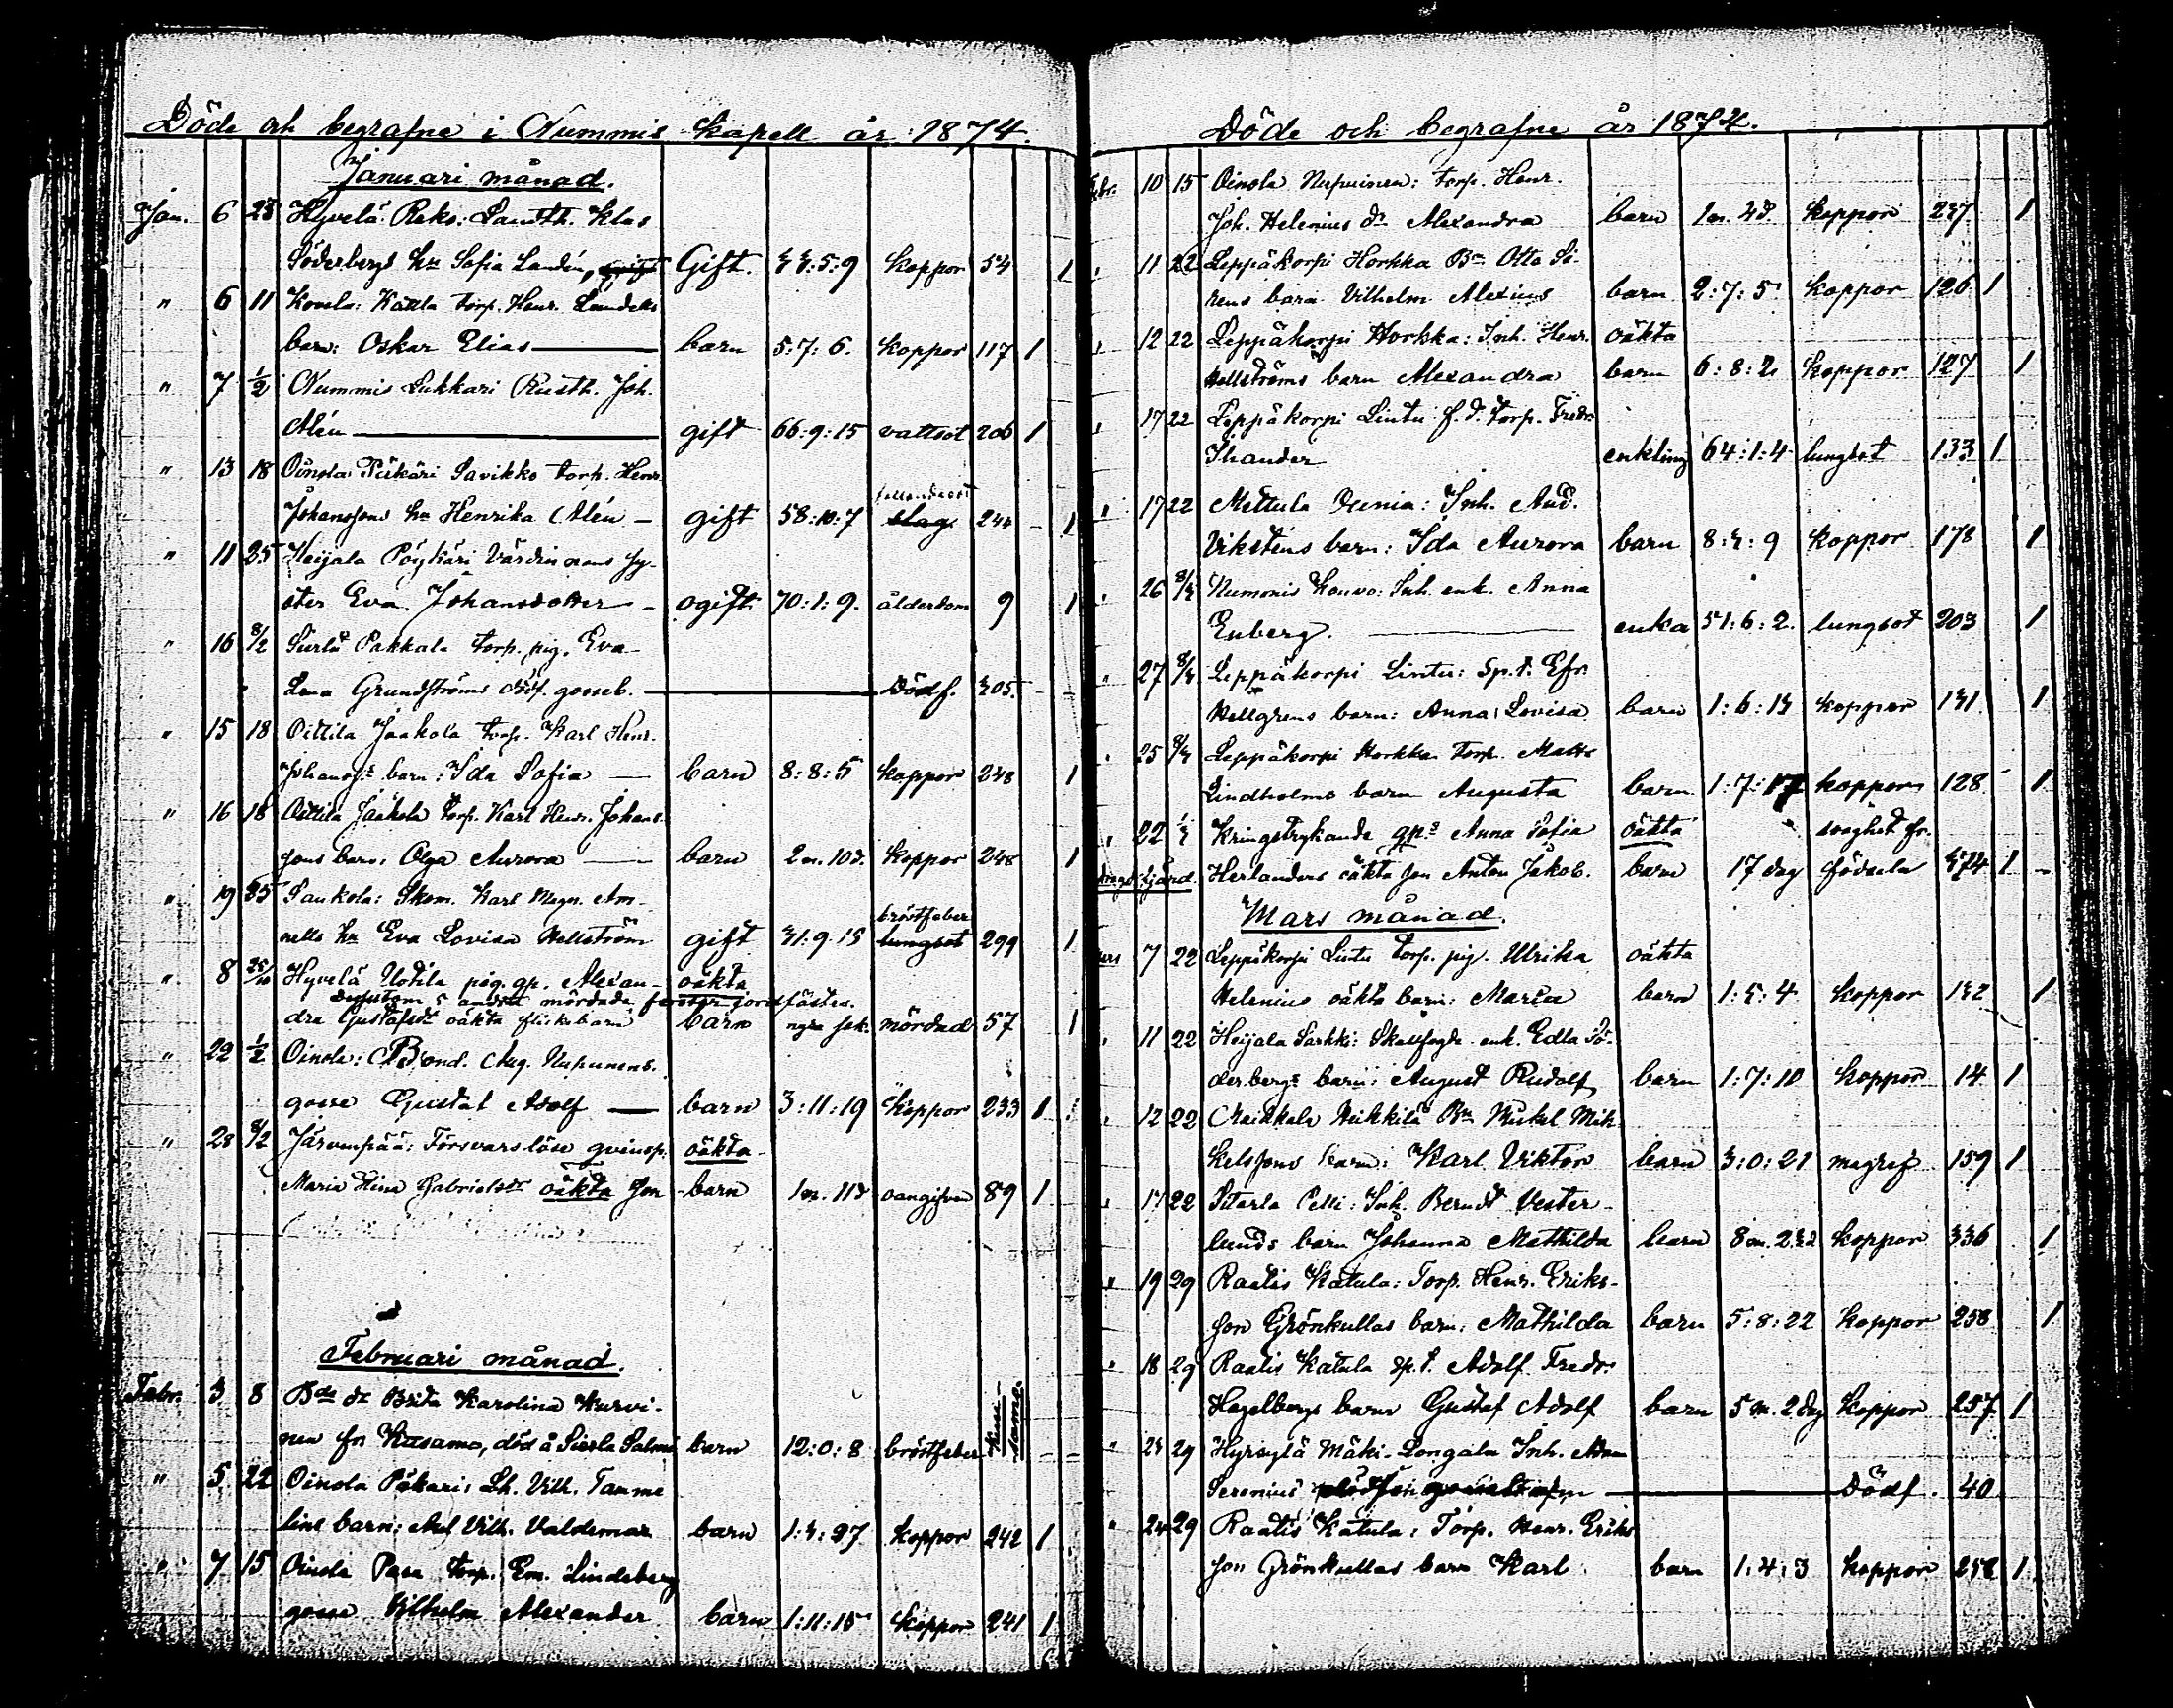 Döde och begrafne i Nummis kapell år 1874.
Januari månad.
Jan. 6 25 Hyvelä Reko: Landth. Klas
Söderbergs hu Sofia Landén, Gift. 33:5:9 koppor 54 1
" 6 11 Kovela: Torp. Henr.
barn: Oskar Elias barn 5:7:6. koppor 117 1
" 7 1/2 Nummis Lukkari Rusth. Joh.
Alén gift 66:9:15 vattsot 206 1
" 13 18 Oinola Pükäri Savikko torp. Henr.
Johanssons hu Henrika Alén - gift 58:10:7 fallandesot slag 244 - 1
" 11 25 Heijala Pöykäri Värdinnans sy-
ster Eva Johansdotter - ogift 70:1:9. ålderdom 9 1
" 16 8/2 Siurla Pakkala torp. pig. Eva
Lena Grundströms dödf. gosseb. Dödf. 305.
" 15 18 Oittila Jaakola torp. Karl Henr.
Johanss barn: Ida Sofia barn 8:8:5 koppor 248 1
" 16 18 Oittila Jaakola torp. Karl Henr. Johans-
sons barn: Olga Aurora barn 2m. 10d. koppor 248 1
" 19 25 Saukola: Skom. Karl Magn. Am-
nells hu Eva Lovisa Hellström gift 31:9:15 bröstfeber lungsot 299 1
" 8 25/10 Hyvelä Uotila pig. gp. Alexan- oäkta
mördade
dra Gustafsdr oäkta flickebarn barn mördad 57 1
" 22 1/2 Oinola: Bond. Aug. Nupunens.
gosse Gustaf Adolf barn 3:11:19 koppor 233 1
" 28 8/2 Järvenpää: Försvarslösa qvinsp. oäkta
Maria Stina Gabrielsdr oäkta son barn 1m. 11d oangifven 89 1
Februari månad.
Febr. 3 8 Bde dr Brita Karolina Kurvi-
nen fr Kusamo, död å Siurla Salmi barn 12:0:8 bröstfeber Kuusamo.
" 5 22 Oinola Päkäri: Lh. Vilh. Tamme
lins barn: Axel Vilh. Valdemar barn 1:3:27 koppor 242 1
" 7 15 Oinola Pasa torp. Em. Lindeberg
gosse Vilhelm Alexander barn 1:11:15 koppor 241 1
Döde och begrafne år 1874.
Febr. 10 15 Oinola Nupuinen: torp. Henr.
Joh. Helenius dr Alexandra barn 1m. 4d. koppor 237 1
" 11 22 Leppäkorpi Horkka Bn Otto Si-
rens barn Vilhelm Alexius barn 2:7:5 koppor 126 1
" 12 22 Leppäkorpi Horkka: Inh. Henr. oäkta
Hellströms barn Alexandra barn 6:8:2 koppor 127 1
" 17 22 Leppäkorpi Lintu f.d. torp. Fredr.
Ihander enkling 64:1:4 lungsot 133 1
" 17 22 Mettula Inh. And.
Viksténs barn: Ida Aurora barn 8:3:9 koppor 178 1
" 26 8/3 Nummis Kouvo: Inh. enk. Anna
Enberg. enka 51:6:2. lungsot 203 1
" 27 8/3 Leppäkorpi Lintu: Sp.t. Efr.
Hellgrens barn: Anna Lovisa barn 1:6:13 koppor 131 1
" 25 8/3 Leppäkorpi Horkka torp. Matts
Lindholms barn Augusta barn 1:7:17 koppor 128 1
" 22 1/3 Kringstrykande qps Anna Sofia oäkta svaghet fr.
Herlanders oäkta son Anton Jakob. barn 17 dag födseln 374 1
Mars månad.
Mars 7 22 Leppäkorpi Lintu torp. pig. Ulrika oäkta
Helenius oäkta barn: Maria barn 1:5:4 koppor 132 1
" 11 22 Heijala Sarkki: Skallfogde enk. Edla Sö-
derbergs barn: August Rudolf barn 1:7:10 koppor 14 1
" 12 22 Maikkala Heikkilä Bn Mikel Mik-
kelssons barn: Karl Viktor barn 3:0:21 magref 159 1
" 17 22 Siurla Pelli: Inh. Berndt Vester-
lunds barn Johanna Mathilda barn 8m. 23d koppor 336 1
" 19 29 Raatis Katula: Torp. Henr. Eriks-
son Grönkullas barn: Mathilda barn 5:8:22 koppor 258 1
" 18 29 Raatis Katula sp.t. Adolf Fredr.
Hagelbergs barn Gustaf Adolf barn 5 m. 2 dag koppor 257 1
" 23 29 Hyrsylä Mäki-Longala Inh. Adam
Serenius Dödf. 40
" 24 29 Raatis Katula: Torp. Henr. Eriks
son Grönkullas barn Karl barn 1:4:3 koppor 258 1